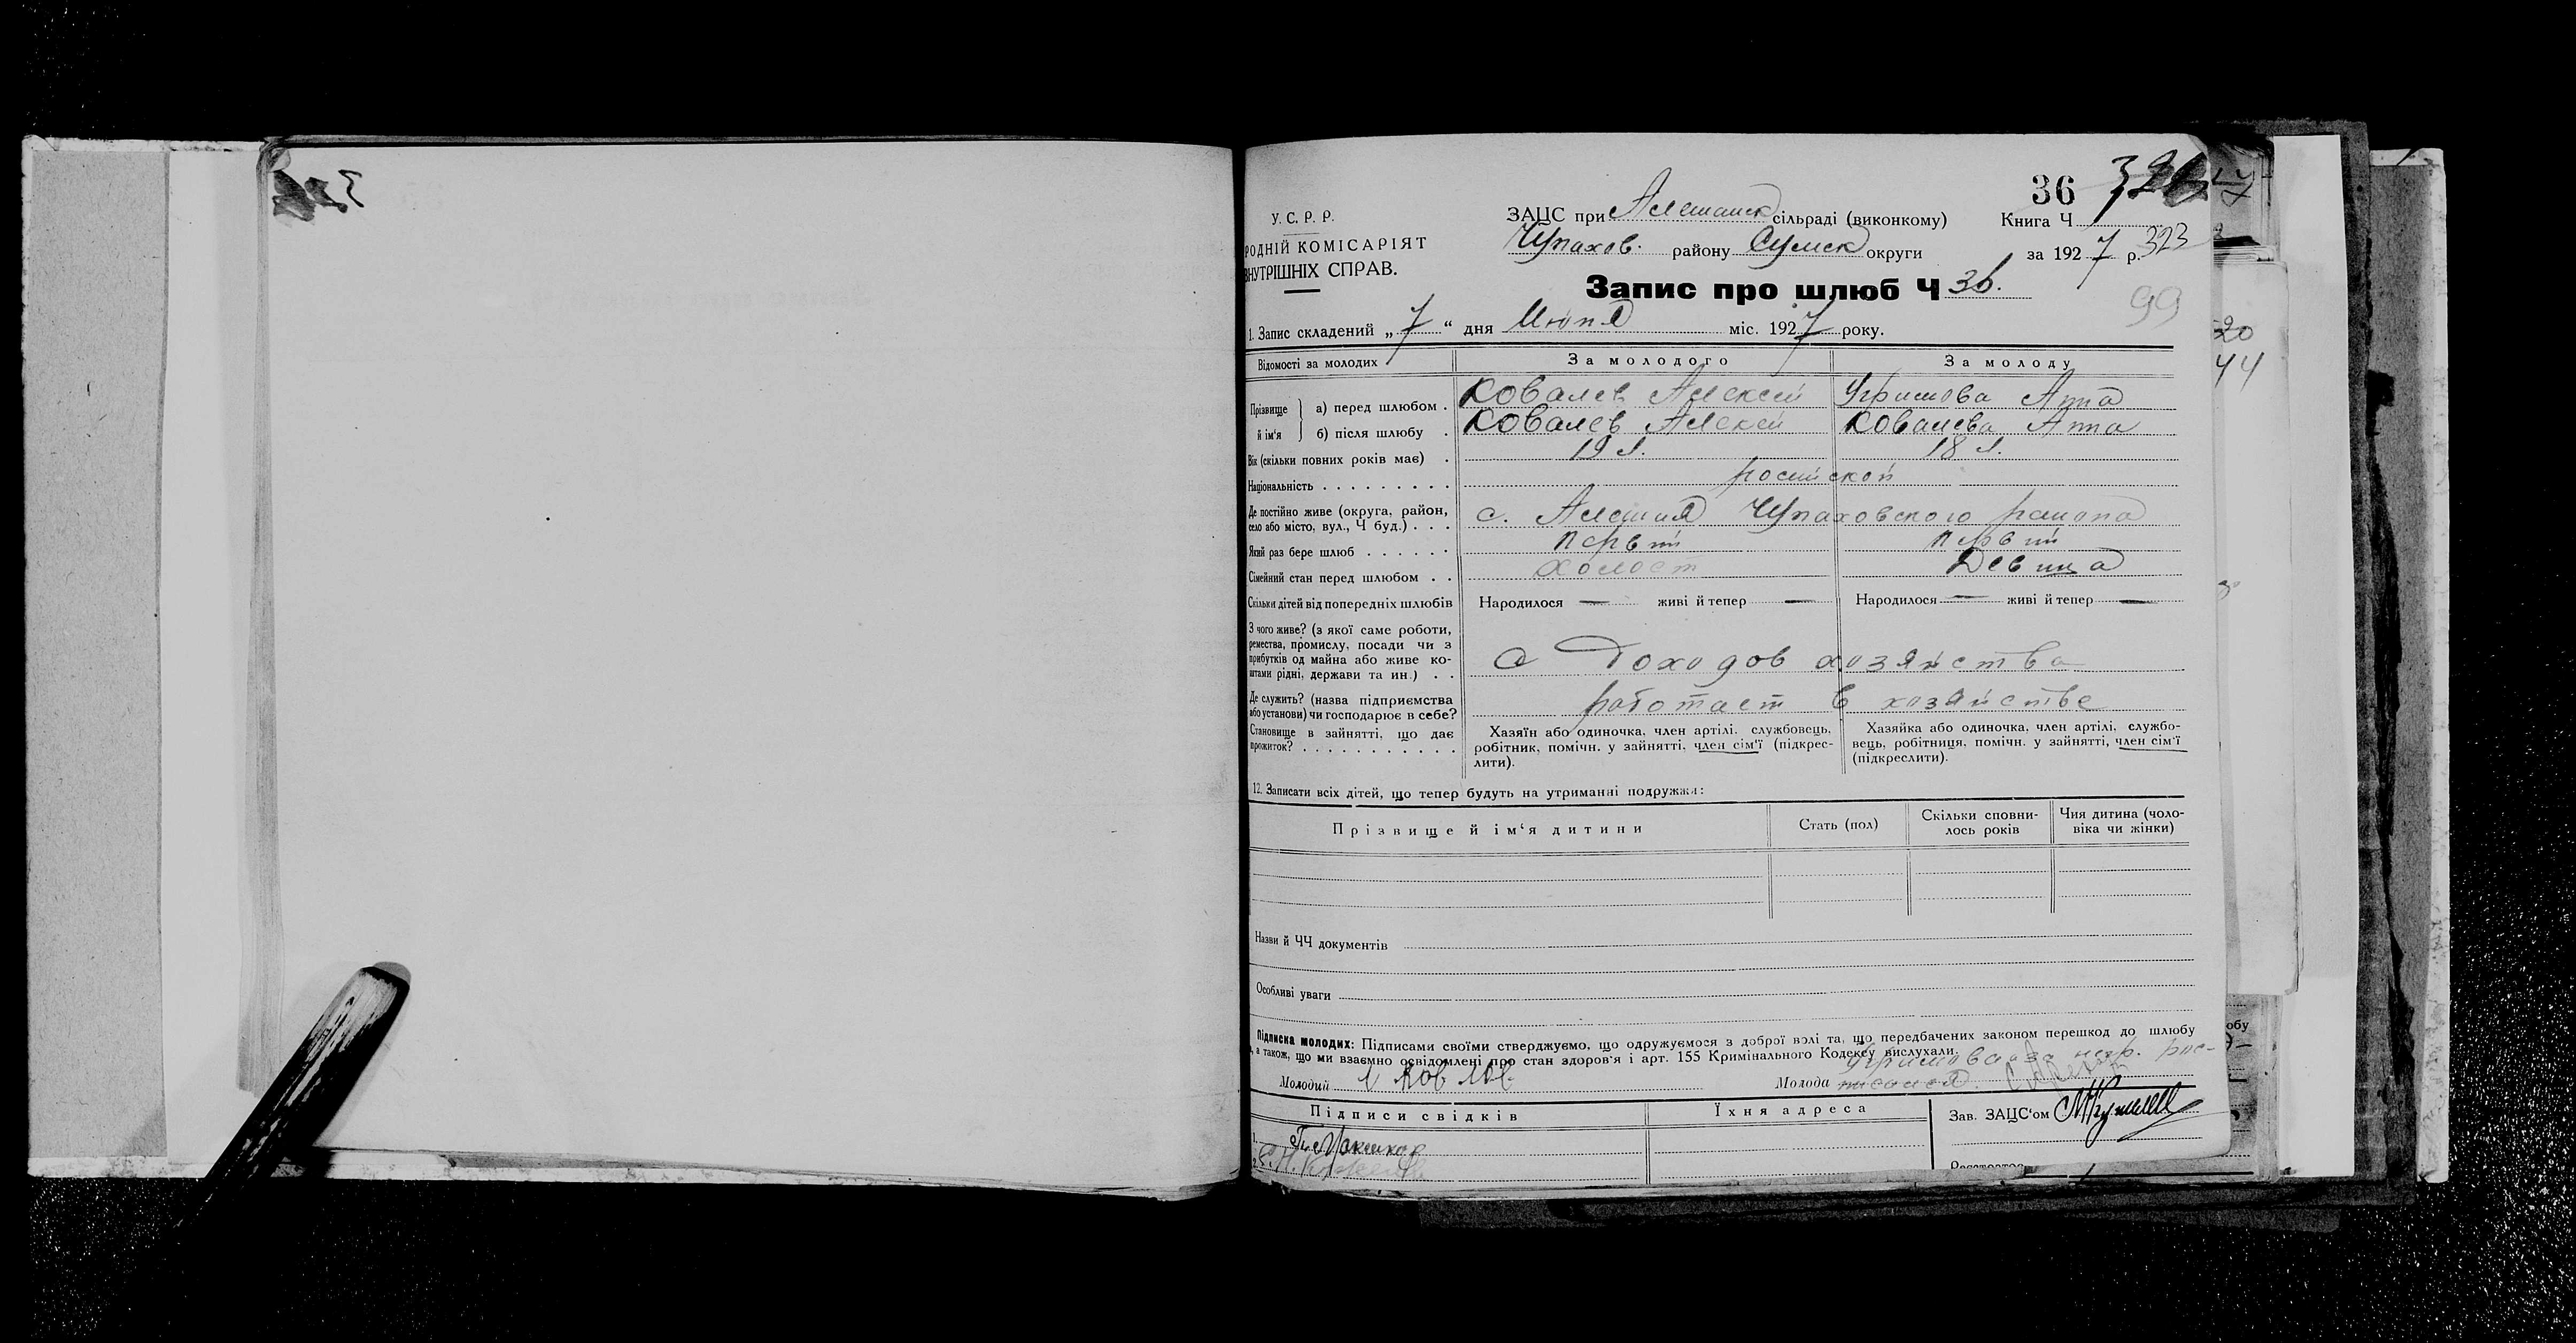 36
У. С. Р. Р.
ЗАЦС при Алешанск сільраді (виконкому)
Книга Ч.
РОДНІЙ КОМІСАРІЯТ
Чупахов. району Сумск округи
за 1927 р. 323
ВНУТРІШНІХ СПРАВ.
Запис про шлюб Ч 36.
99
1. Запис складений „7“ дня Июня міс. 1927 року.
Відомості за молодих За молодого За молоду
Прізвище й ім'я а) перед шлюбом . Ковалев Алексей Угримова Анна
б) після шлюбу . Ковалев Алексей Ковалева Анна
Вік (скільки повних років має) . 19 л. 18 л.
Національність . . . . . . . . . росийской
Де постійно живе (округа, район, село або місто, вул., Ч буд.) . . . с. Алешня Чупаховского района
Який раз бере шлюб . . . . . . первий первий
Сімейний стан перед шлюбом . . холост Девица
Скільки дітей від попередніх шлюбів Народилося — живі й тепер — Народилося — живі й тепер —
З чого живе? (з якої саме роботи,
ремества, промислу, посади чи з
прибутків од майна або живе ко-
штами рідні, держави та ин.) . . С Доходов хозяйства
Де служить? (назва підприємства
або установи) чи господарює в себе? работает в хозяйстве
Становище в зайнятті, що дає
прожиток? . . . . . . . . . . .
Хазяїн або одиночка, член артілі, службовець,
робітник, помічн. у зайнятті, член сім'ї (підкрес-
лити).
Хазяйка або одиночка, член артілі, службо-
вець, робітниця, помічн. у зайнятті, член сім'ї
(підкреслити).
12. Записати всіх дітей, що тепер будуть на утриманні подружжя:
Прізвище й ім'я дитини Стать (пол) Скільки сповни-
лось років Чия дитина (чоло-
віка чи жінки)
Назви й ЧЧ документів
Особливі уваги
Підписка молодих: Підписами своїми стверджуємо, що одружуємося з доброї волі та, що передбачених законом перешкод до шлюбу
, а також, що ми взаємно освідомлені про стан здоров'я і арт. 155 Кримінального Кодексу вислухали.
Угримова а за негр. рос-
Молодий Молода писался.
Підписи свідків Їхня адреса Зав. ЗАЦС'ом
1.
2.
20
44